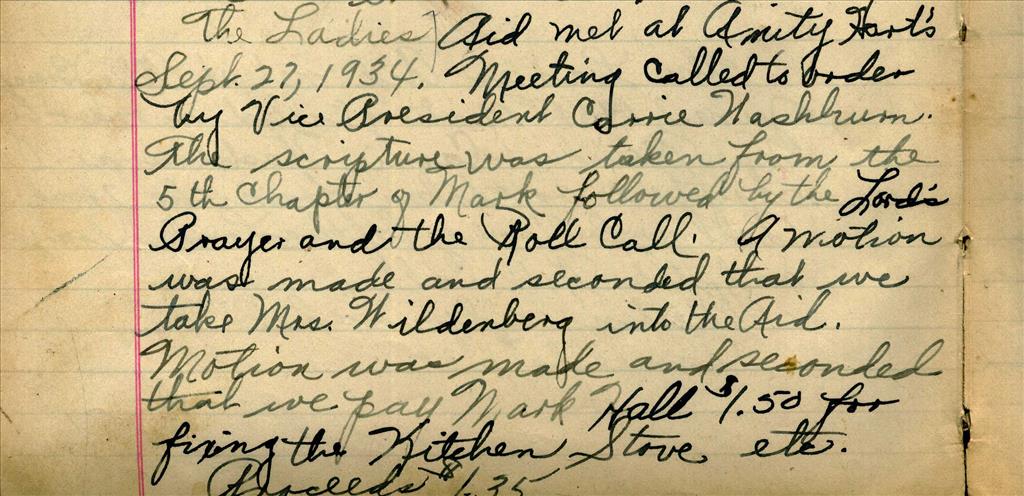 The Ladies Aid met at Amity Hart's
Sept. 27, 1934. Meeting called to order
by Vice President Carrie Washburn.
The scripture was taken from the
5th Chapter of Mark followed by the Lord's
Prayer and the Roll Call. A motion
was made and seconded that we
take Mrs. Wildenberg into the Aid.
Motion was made and seconded
that we pay Mark Hall $1.50 for
fixing the Kitchen Stove etc.
Proceeds $1.35